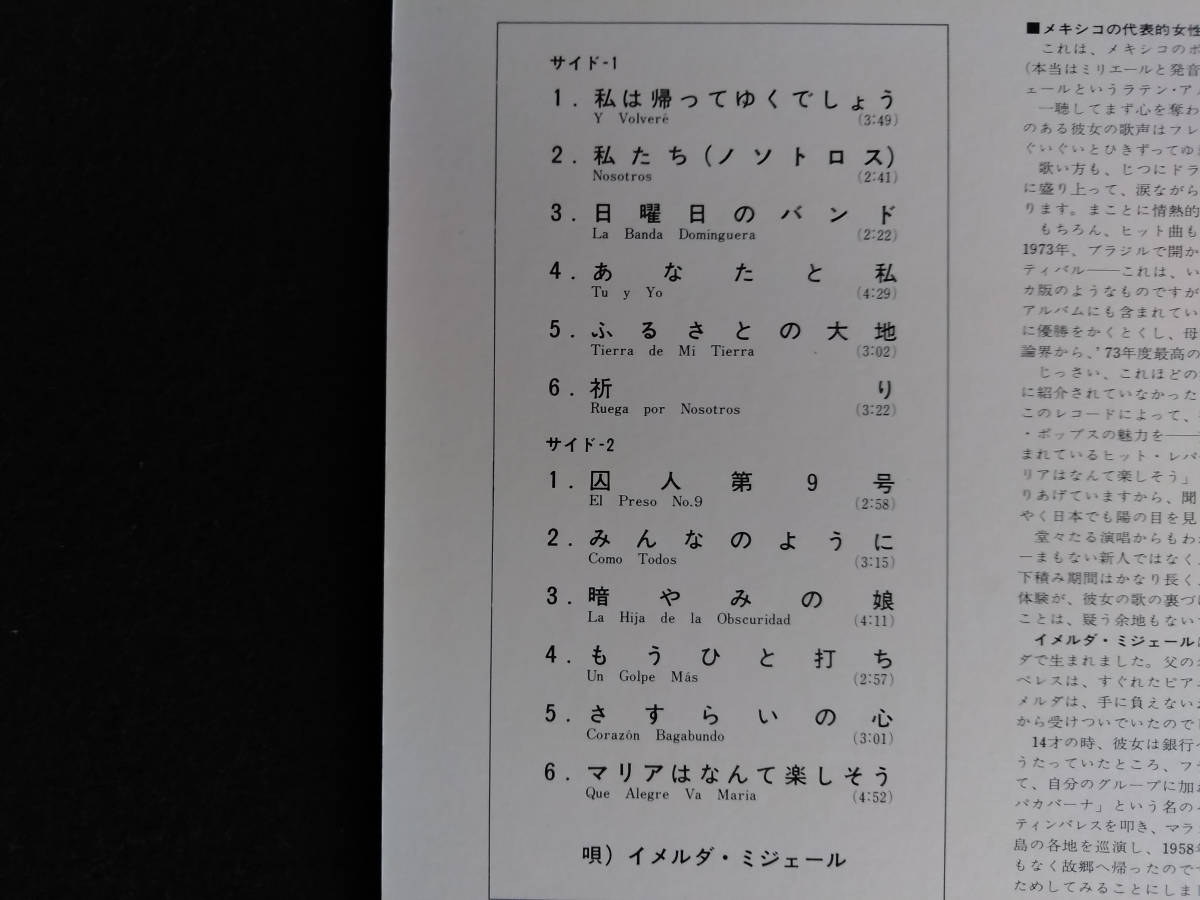 サイド-1
1. 私は帰ってゆくでしょう
Y Volveré (3:49)
2. 私たち(ノソトロス)
Nosotros (2:41)
3. 日曜日のバンド
La Banda Dominguera (2:22)
4. あなたと私
Tu y Yo (4:29)
5. ふるさとの大地
Tierra de Mi Tierra (3:02)
6. 祈り
Ruega por Nosotros (3:22)
サイド-2
1. 囚人第9号
El Preso No.9 (2:58)
2. みんなのように
Como Todos (3:15)
3. 暗やみの娘
La Hija de la Obscuridad (4:11)
4. もうひと打ち
Un Golpe Más (2:57)
5. さすらいの心
Corazón Bagabundo (3:01)
6. マリアはなんて楽しそう
Que Alegre Va Maria (4:52)
唄) イメルダ・ミジェール
■メキシコの代表的女性
これは、メキシコのポ
(本当はミリエールと発音
ェールというラテン・ア
一聴してまず心を奪わ
のある彼女の歌声はフレ
ぐいぐいとひきずってゆ
歌い方も、じつにドラ
に盛り上って、涙ながら
ります。まことに情熱的
もちろん、ヒット曲も
1973年、ブラジルで開か
ティバル――これは、い
カ版のようなものですが
アルバムにも含まれてい
に優勝をかくとくし、母
論界から、'73年度最高の
じっさい、これほどの
に紹介されていなかった
このレコードによって、
・ポップスの魅力を――
まれているヒット・レパ
リアはなんて楽しそう」
りあげていますから、聞
やく日本でも陽の目を見
堂々たる演唱からもわ
―まもない新人ではなく、
下積み期間はかなり長く
体験が、彼女の歌の裏づ
ことは、疑う余地もない
イメルダ・ミジェール
ダで生まれました。父の
ペレスは、すぐれたピア
メルダは、手に負えない
から受けついでいたので
14才の時、彼女は銀行
うたっていたところ、フ
て、自分のグループに加
バカバーナ」という名の
ティンバレスを叩き、マラ
島の各地を巡演し、1958年
もなく故郷へ帰ったので
ためしてみることにしま